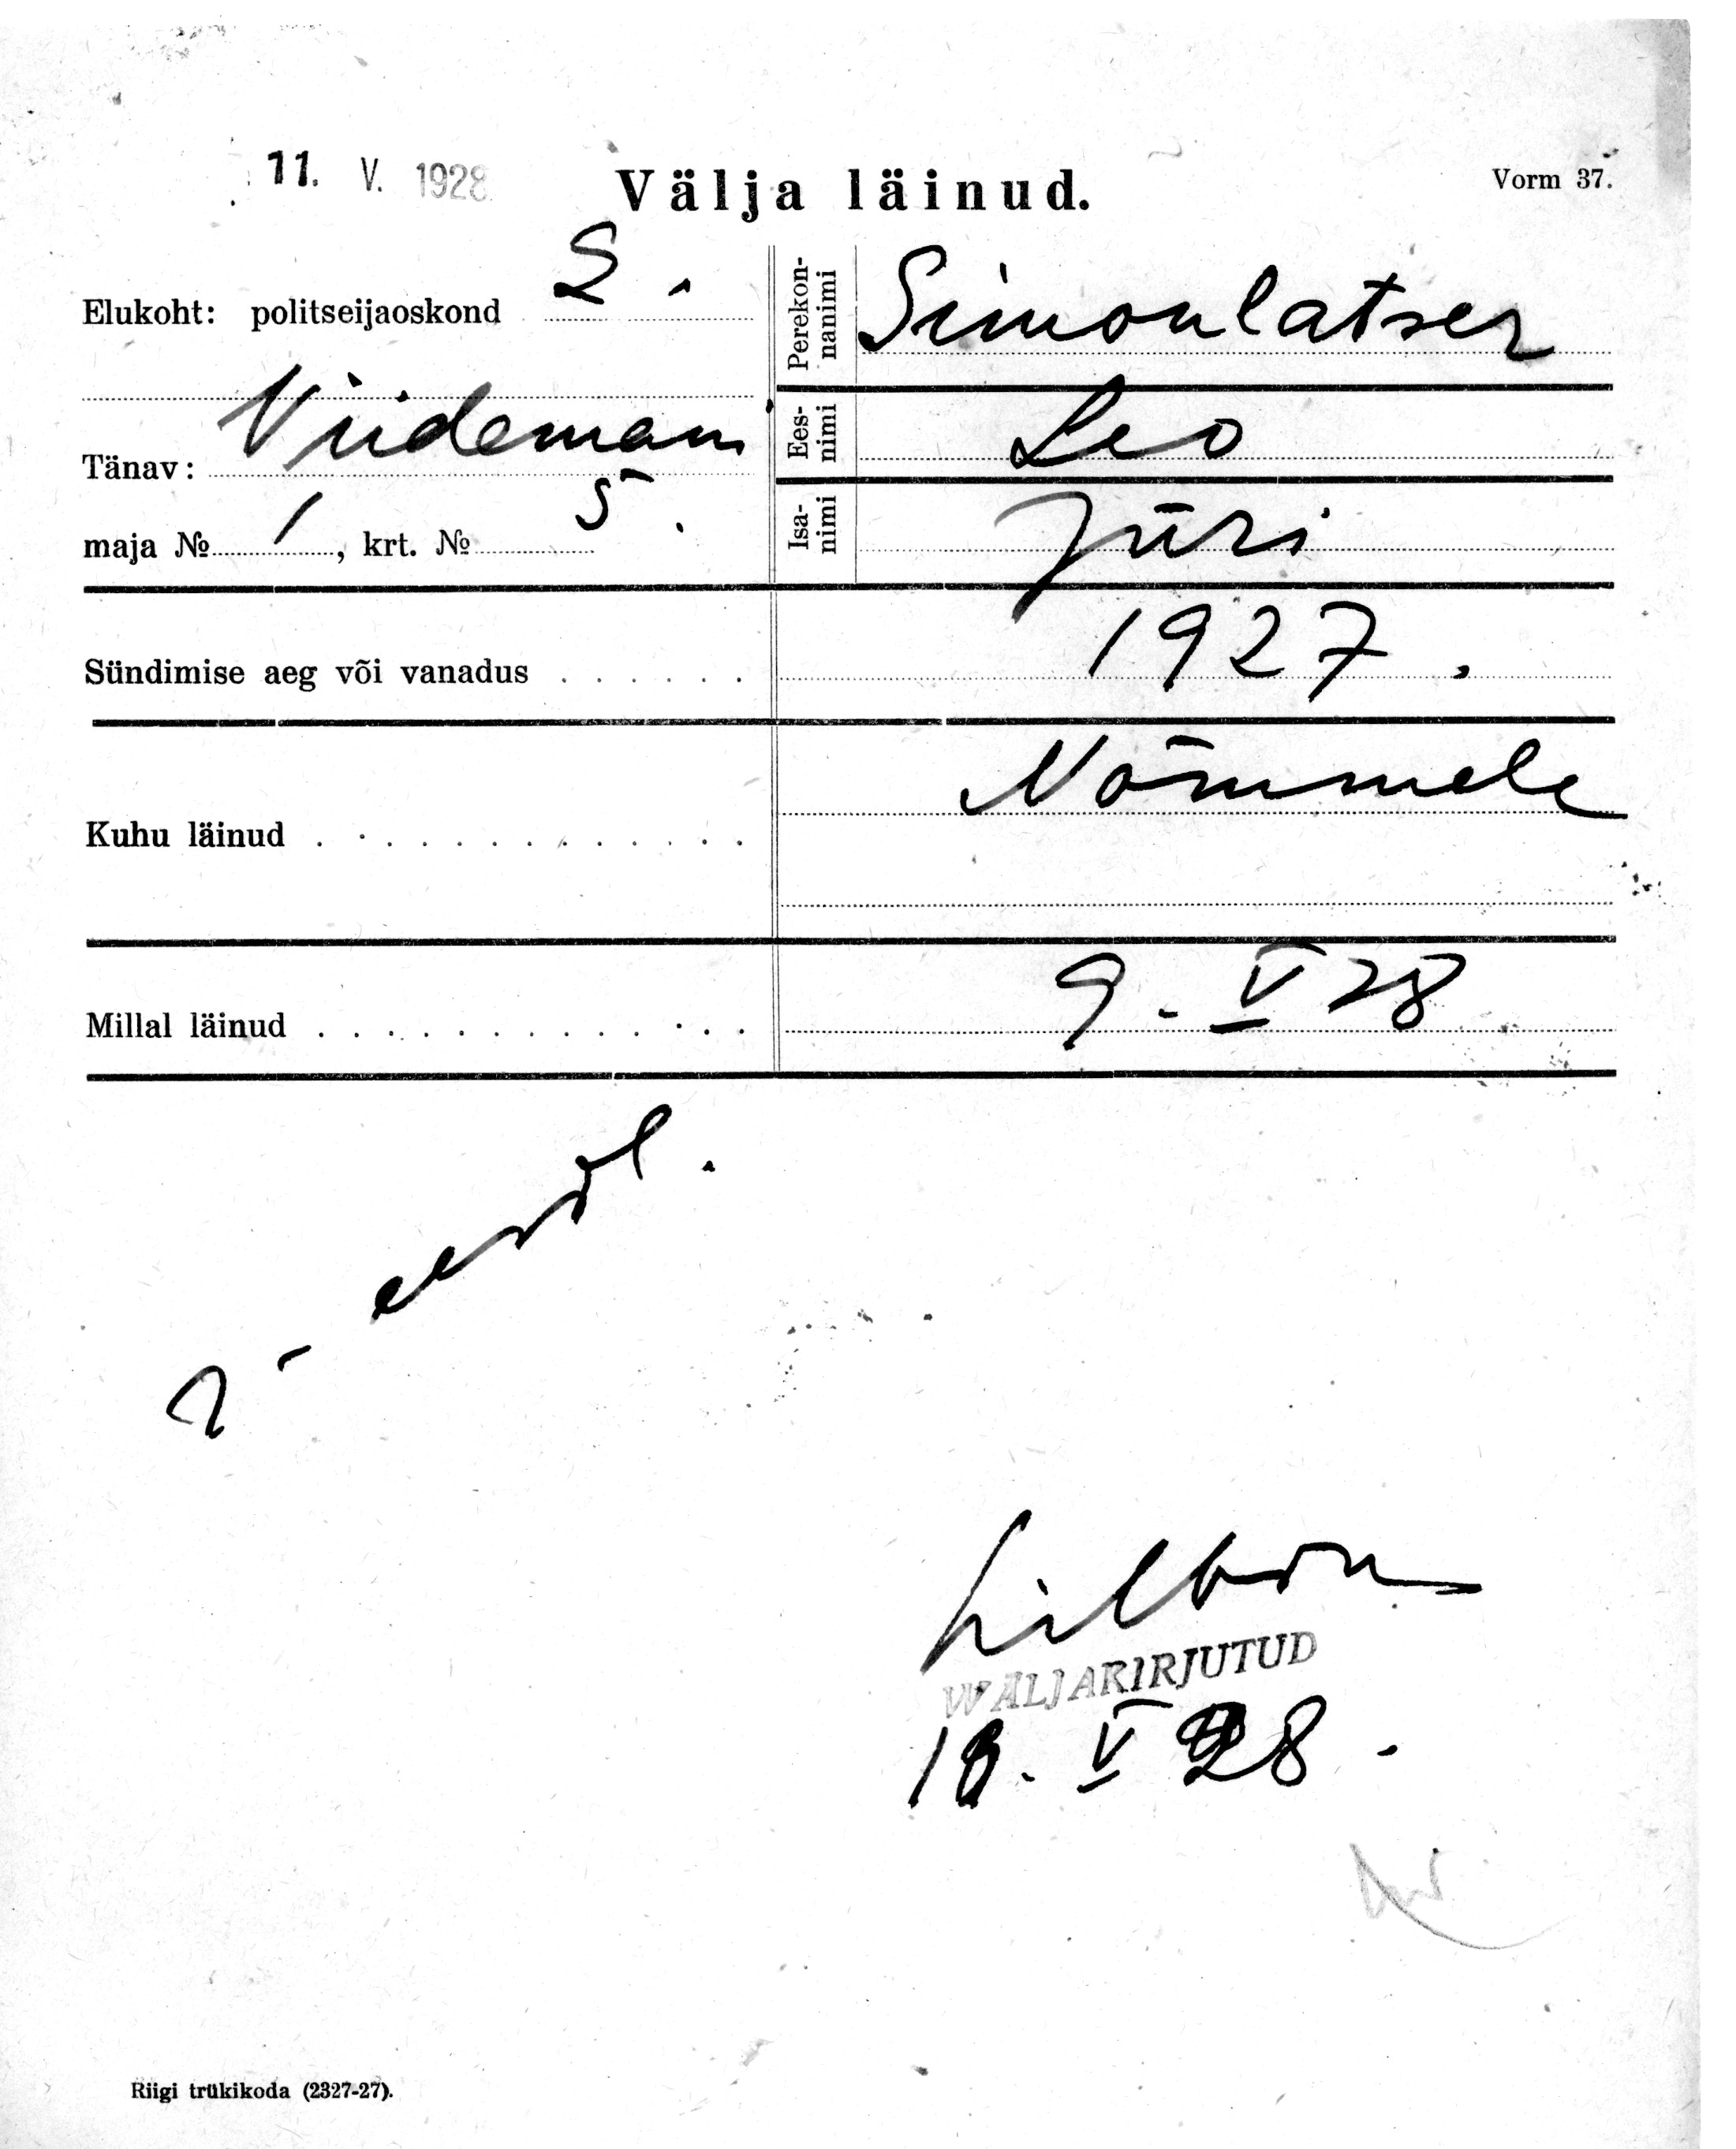 11. V. 1928
Välja läinud.
Vorm 37.
Elukoht: politseijaoskond 2.
Tänav: Viidemann
maja № 1, krt. № 5.
Perekonnanimi Simonlatser
Eesnimi Leo
Isanimi Jüri
Sündimise aeg või vanadus . . . . . . 1927.
Kuhu läinud . . . . . . . . . . . . . Nõmmele
Millal läinud . . . . . . . . . . . . . 9. V 28
WÄLJAKIRJUTUD
V 28.
Riigi trükikoda (2327-27).